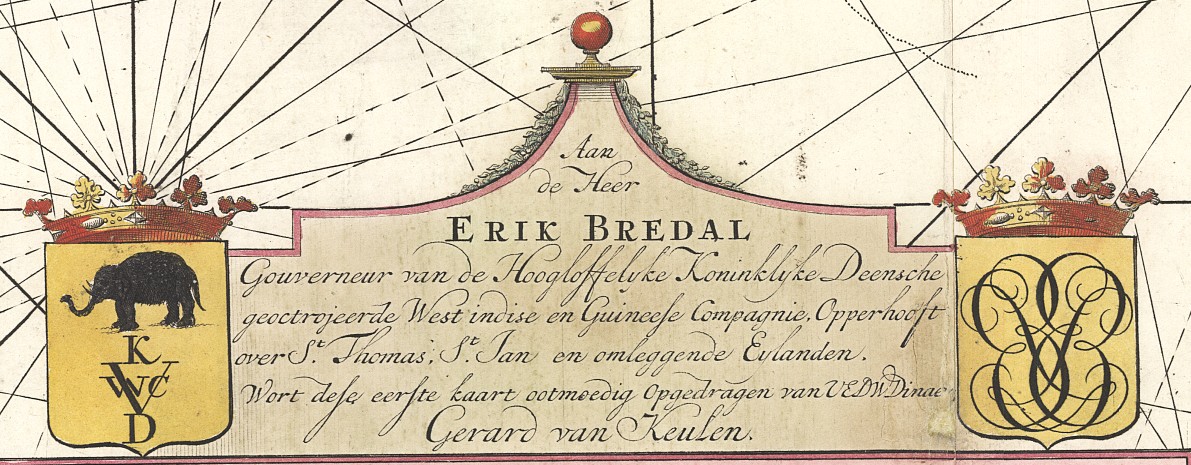 Aan
de Heer
ERIK BREDAL
Gouverneur van de Hoogloffelyke Koninklyke Deensche
geoctrojeerde West indise en Guineese Compagnie, Opperhooft
over St. Thomas, St. Jan en omleggende Eylanden.
Wort dese eerste kaart ootmoedig Opgedragen van UEDW Dinae
Gerard van Keulen.
K
VWC
D